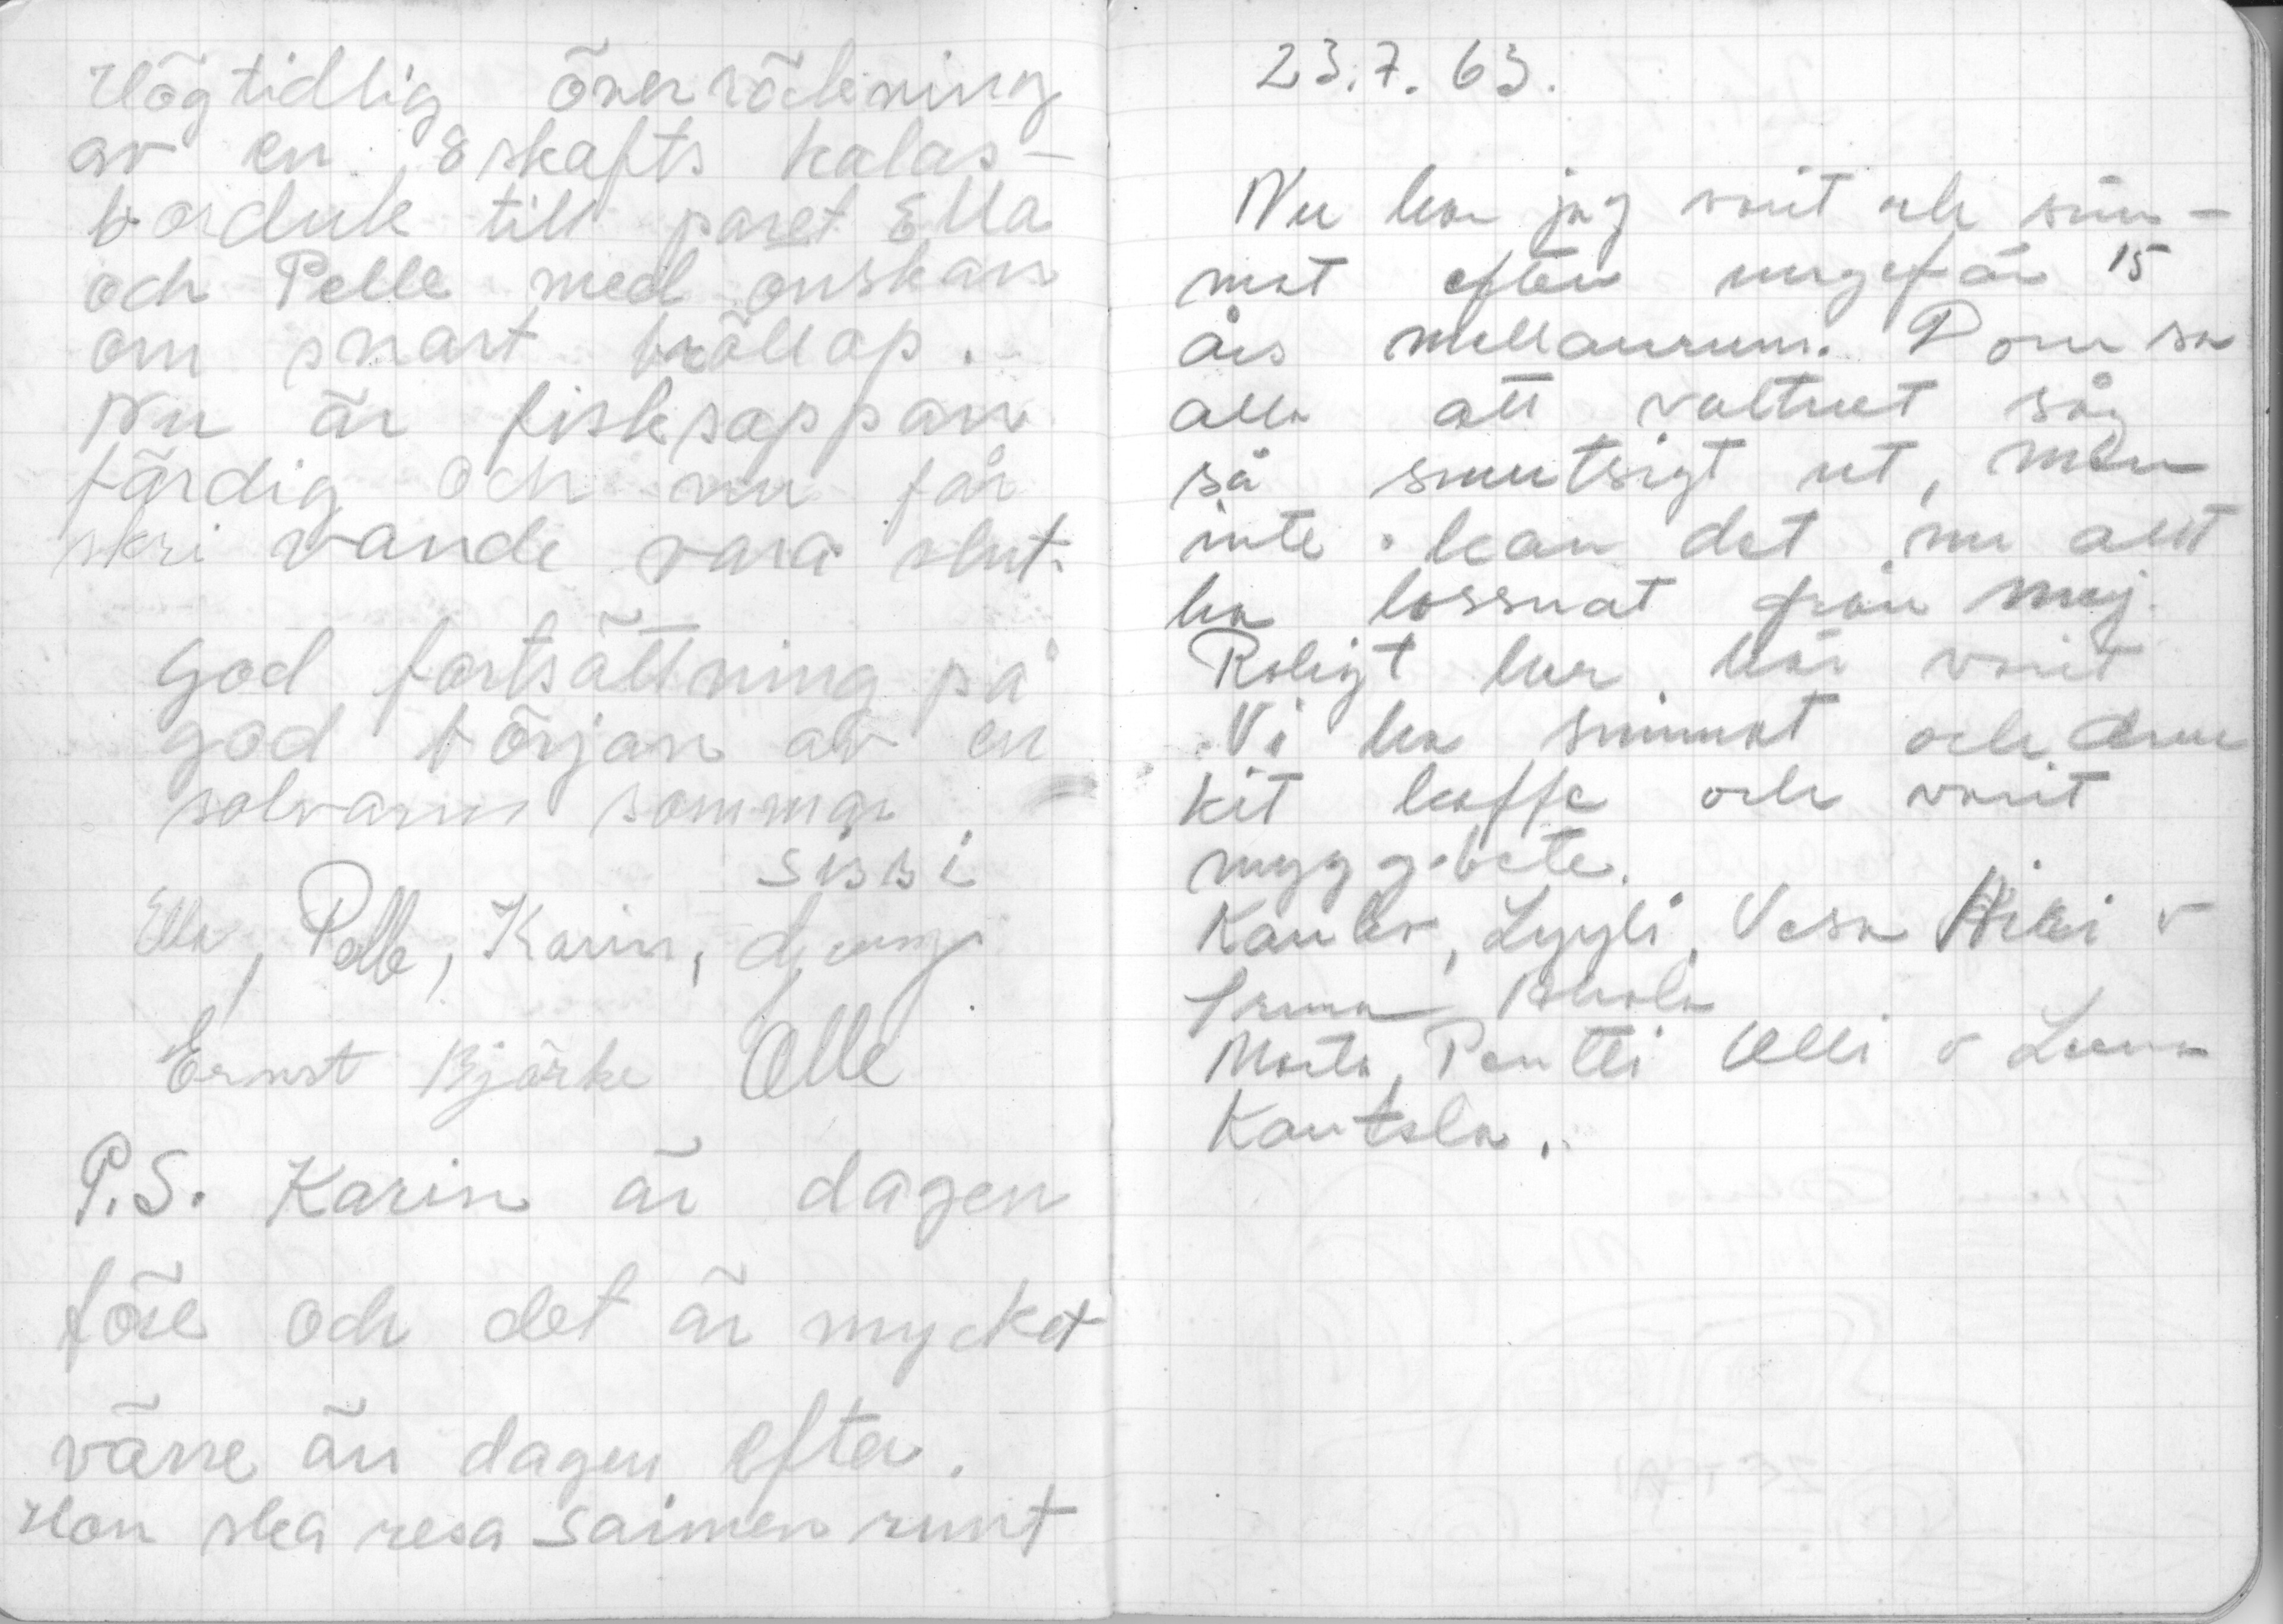 Högtidlig överräckning
av en 8 skafts kalas-
borduk till paret Ella
och Pelle med önskan
om snart bröllop.
Nu är fisksoppan
färdig och nu får
skri vande vara slut.
God fortsättning på
god början av en
solvarm sommar
Sissi
Ella, Pelle, Karin,
Ernst Björke Olle
P.S. Karin är dagen
före och det är mycket
värre än dagen efter.
Hon ska resa Saimen runt
23.7.63.
Nu har jag varit och sim-
mat efter ungefär 15
års mellanrum. Dom sa
alla att vattnet såg
så smutsigt ut, men
inte kan det nu allt
ha lossnat från mej.
Roligt har här varit
Vi ha simmat och druc
kit kaffe och varit
myggbete.
Lyyli, Vesa
Irma
Marta, Pentti Olli o Leena
Kautsla.